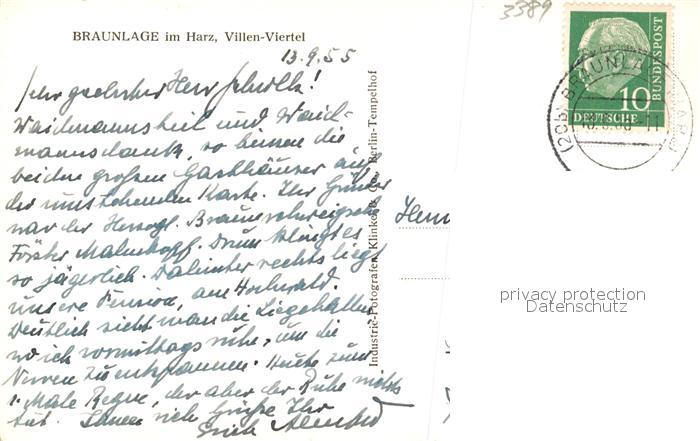 BRAUNLAGE im Harz, Villen-Viertel
3389
13.9.55
Sehr geehrter Herr
Waidmannsheil und Waid-
mannsdank, so heissen die
beiden großen Gasthäuser auf
der umstehenden Karte. Ihr Gründer
war der Herzogl. Braunschweigische
Förster Malmkopf. Drum klingt es
so jägerlich. Dahinter rechts liegt
unsere Pension, am Hochwald.
Deutlich sieht man die Liegehallen,
wo ich vormittags ruhe, um die
Nerven zu entspannen. Heute zum
1. Male Regen, der aber der Ruhe nichts
tut. Ihnen Grüße Ihr
Erich
Industrie-Fotografen Klinke & Co., Berlin-Tempelhof
Herrn
10
DEUTSCHE
BUNDESPOST
(20b) BRAUNLAGE
privacy protection
Datenschutz